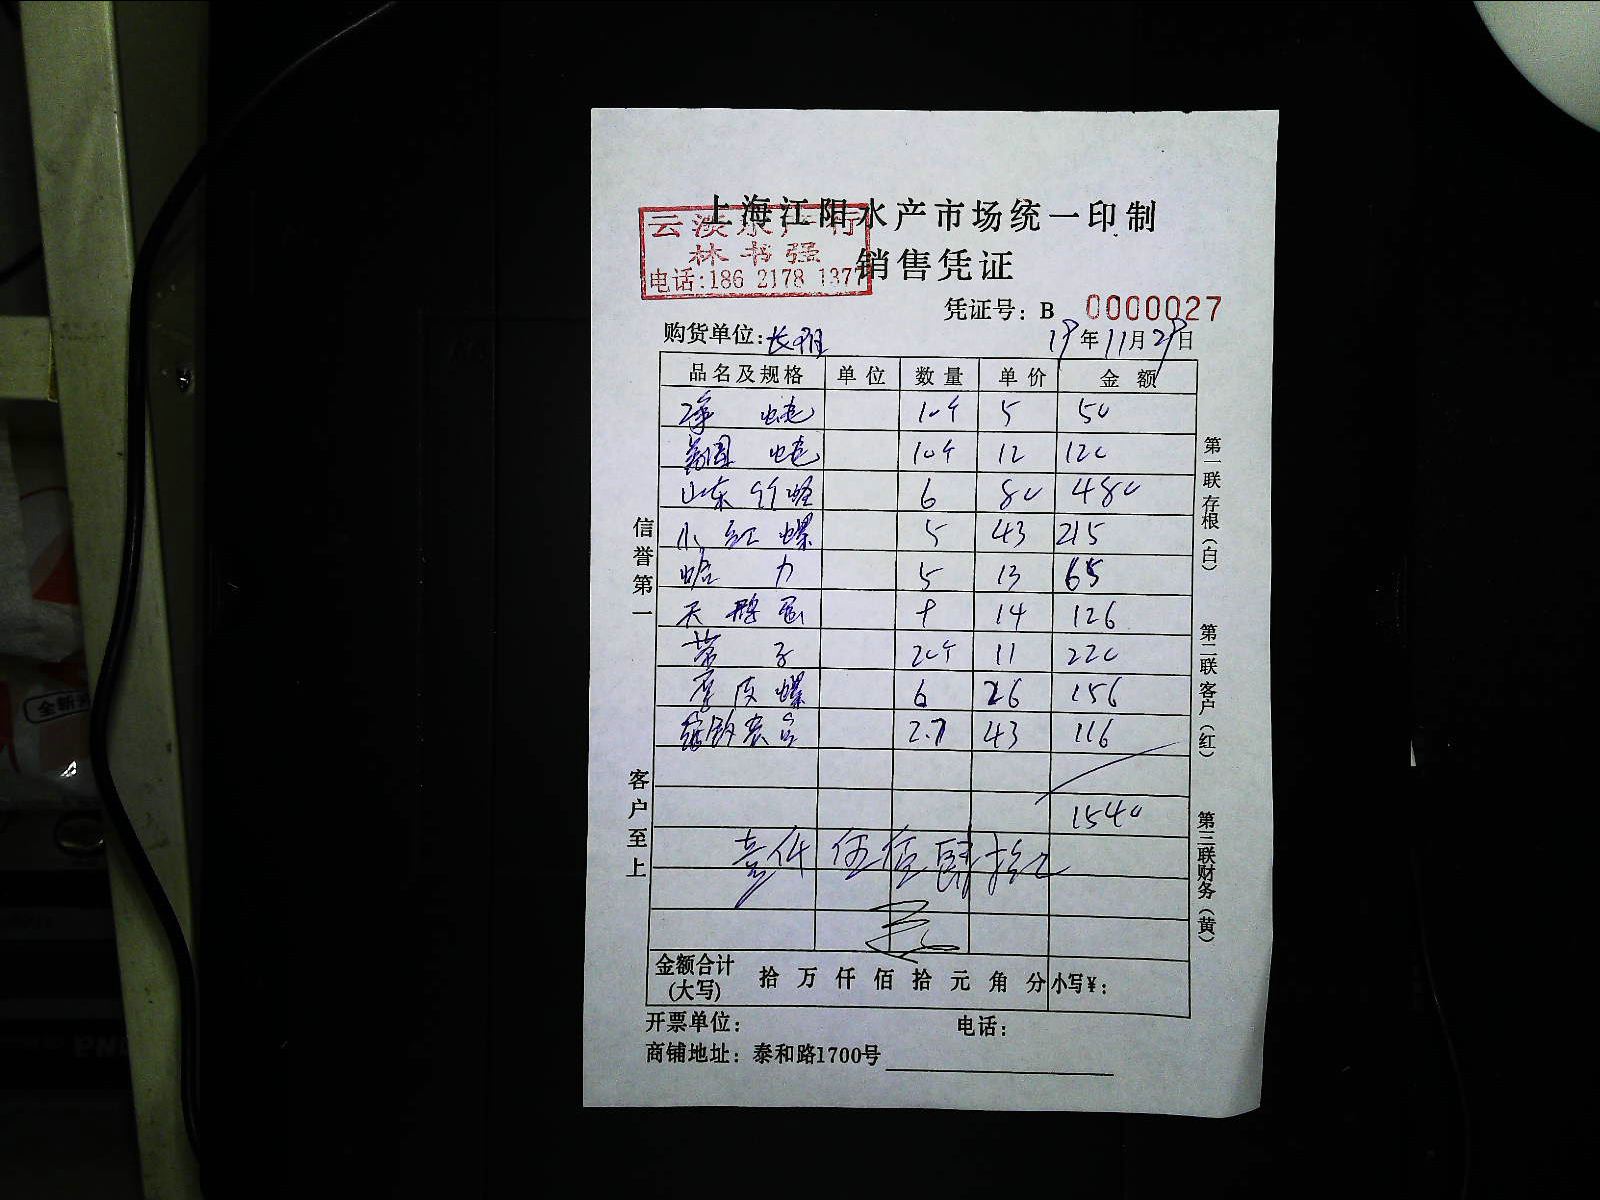 上海江阳水产市场统一印制
云淡水产行
林书强
电话:186 2178 1377
销售凭证
凭证号：B 0000027
购货单位: 19年11月29日
品名及规格 单位 数量 单价 金额
10个 5 50
10个 12 120
山东 6 80 480
小红螺 5 43 215
蛤 5 13 65
天鹅蛋 9 14 126
带子 20个 11 220
厚皮螺 6 26 156
2.7 43 116
1540
壹仟伍佰肆拾元
信誉第一
客户至上
第一联存根（白）
第二联客户（红）
第三联财务（黄）
金额合计(大写) 拾 万 仟 佰 拾 元 角 分 小写￥：
开票单位： 电话：
商铺地址：泰和路1700号
全新